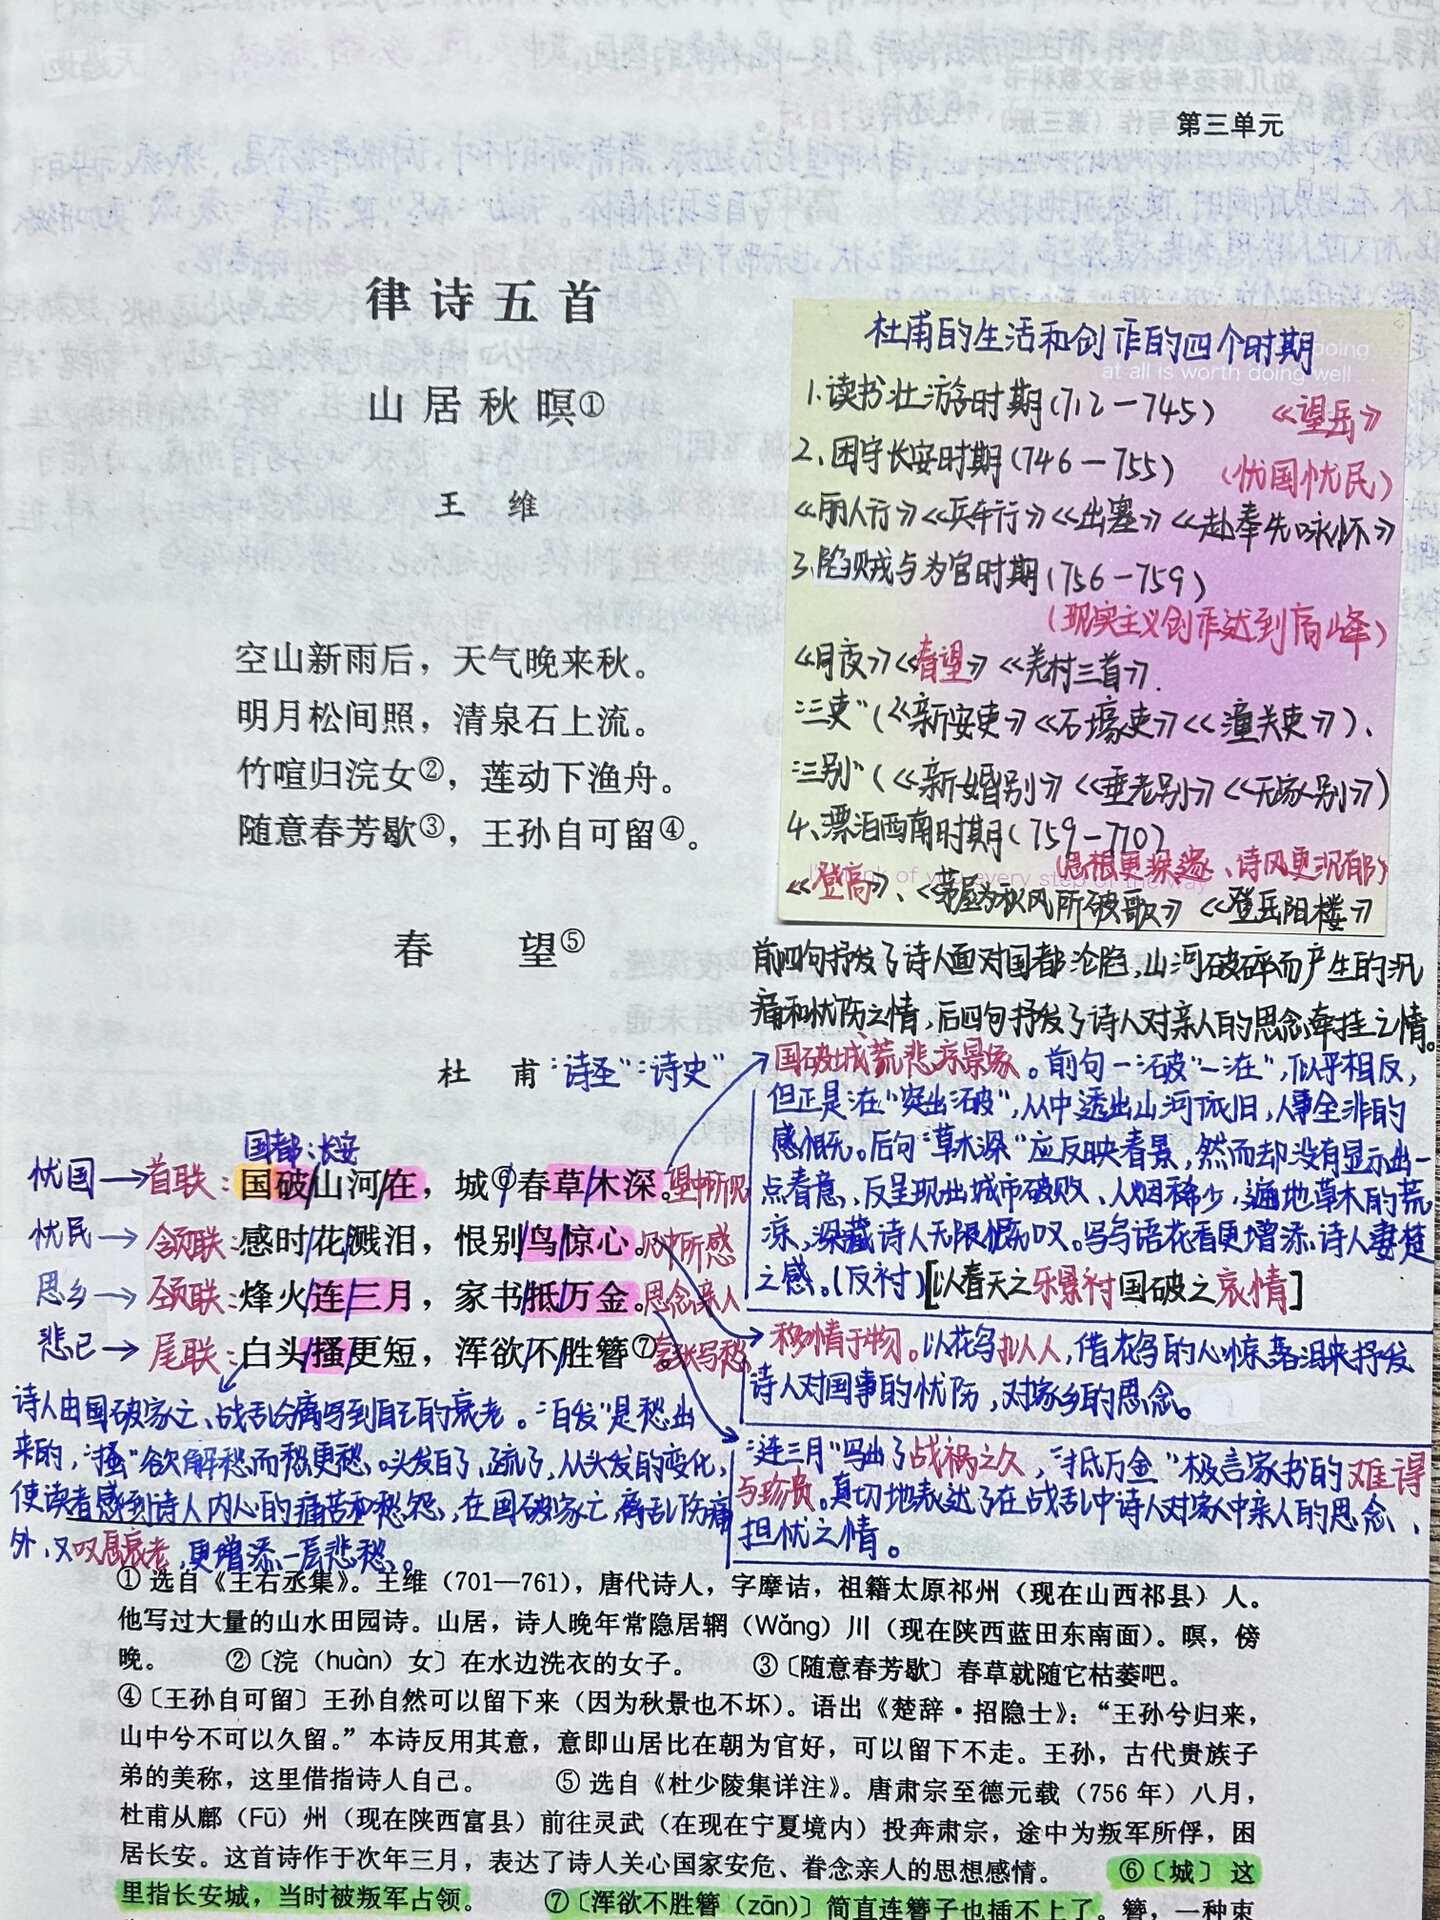 第三单元
律诗五首
山居秋暝①
王 维
空山新雨后，天气晚来秋。
明月松间照，清泉石上流。
竹喧归浣女②，莲动下渔舟。
随意春芳歇③，王孙自可留④。
杜甫的生活和创作的四个时期
doing
at all is worth doing well
1.读书壮游时期(712—745) 《望岳》
2、困守长安时期(746—755) (忧国忧民)
《丽人行》《兵车行》《出塞》《赴奉先咏怀》
3、陷贼与为官时期(756—759)
(现实主义创作达到高峰)
《月夜》《春望》《羌村三首》.
“三吏”(《新安吏》《石壕吏》《潼关吏》)、
“三别”(《新婚别》《垂老别》《无家别》)
4、漂泊西南时期(759—770)
(思想更深邃、诗风更沉郁)
of you every step of the way
《登高》、《茅屋为秋风所破歌》《登岳阳楼》
春 望⑤
杜 甫 “诗圣”“诗史”
前四句抒发了诗人面对国都沦陷,山河破碎而产生的沉
痛和忧伤之情,后四句抒发了诗人对亲人的思念牵挂之情。
国都:长安
忧国→首联:国破/山河/在，城⑥春草/木深。望中所见
忧民→颔联:感时/花/溅泪，恨别/鸟/惊心。心中所感
思乡→颈联:烽火/连/三月，家书/抵/万金。思念亲人
悲己→尾联:白头/搔/更短，浑欲/不/胜簪⑦。言状写愁
国破城荒悲凉景象。前句一“破”一“在”,似乎相反,
但正是“在”突出“破”,从中透出山河依旧,人事全非的
感慨。后句“草木深”应反映春景,然而却没有显示出一
点春意,反呈现出城市破败、人烟稀少,遍地草木的荒
凉,深藏诗人无限慨叹。写鸟语花香更增添诗人凄楚
之感。(反衬)[以春天之乐景衬国破之哀情]
移情于物。以花鸟拟人,借花鸟的心惊落泪来抒发
诗人对国事的忧伤,对家乡的思念。
“连三月”写出了战祸之久,“抵万金”极言家书的难得
与珍贵。真切地表达了在战乱中诗人对家中亲人的思念、
担忧之情。
诗人由国破家亡、战乱分离写到自己的衰老。“白发”是愁出
来的,“搔”欲解愁而愁更愁。头发白了、疏了,从头发的变化,
使读者感到诗人内心的痛苦和愁怨,在国破家亡,离乱伤痛
外,又叹息衰老,更增添一层悲愁。
①选自《王右丞集》。王维（701—761），唐代诗人，字摩诘，祖籍太原祁州（现在山西祁县）人。
他写过大量的山水田园诗。山居，诗人晚年常隐居辋（Wǎng）川（现在陕西蓝田东南面）。暝，傍
晚。 ②〔浣（huàn）女〕在水边洗衣的女子。 ③〔随意春芳歇〕春草就随它枯萎吧。
④〔王孙自可留〕王孙自然可以留下来（因为秋景也不坏）。语出《楚辞·招隐士》：“王孙兮归来，
山中兮不可以久留。”本诗反用其意，意即山居比在朝为官好，可以留下不走。王孙，古代贵族子
弟的美称，这里借指诗人自己。 ⑤选自《杜少陵集详注》。唐肃宗至德元载（756 年）八月，
杜甫从鄜（Fū）州（现在陕西富县）前往灵武（在现在宁夏境内）投奔肃宗，途中为叛军所俘，困
居长安。这首诗作于次年三月，表达了诗人关心国家安危、眷念亲人的思想感情。 ⑥〔城〕这
里指长安城，当时被叛军占领。 ⑦〔浑欲不胜簪（zān）〕简直连簪子也插不上了。簪，一种束